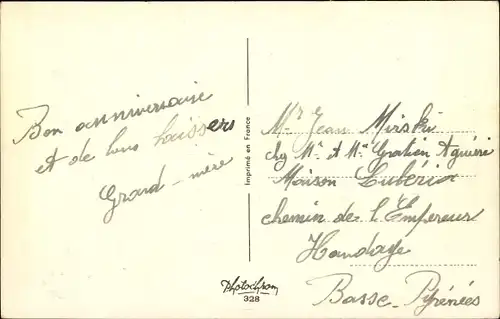 Bon anniversaire
et de bons baissers
Grand-mère
Imprimé en France
Mr Jean Mirski
chez Mr et Me Gratien Aguirre
Maison Luberia
chemin de l'Empereur
Handaye
Basse-Pyrénées
Photochrom
328